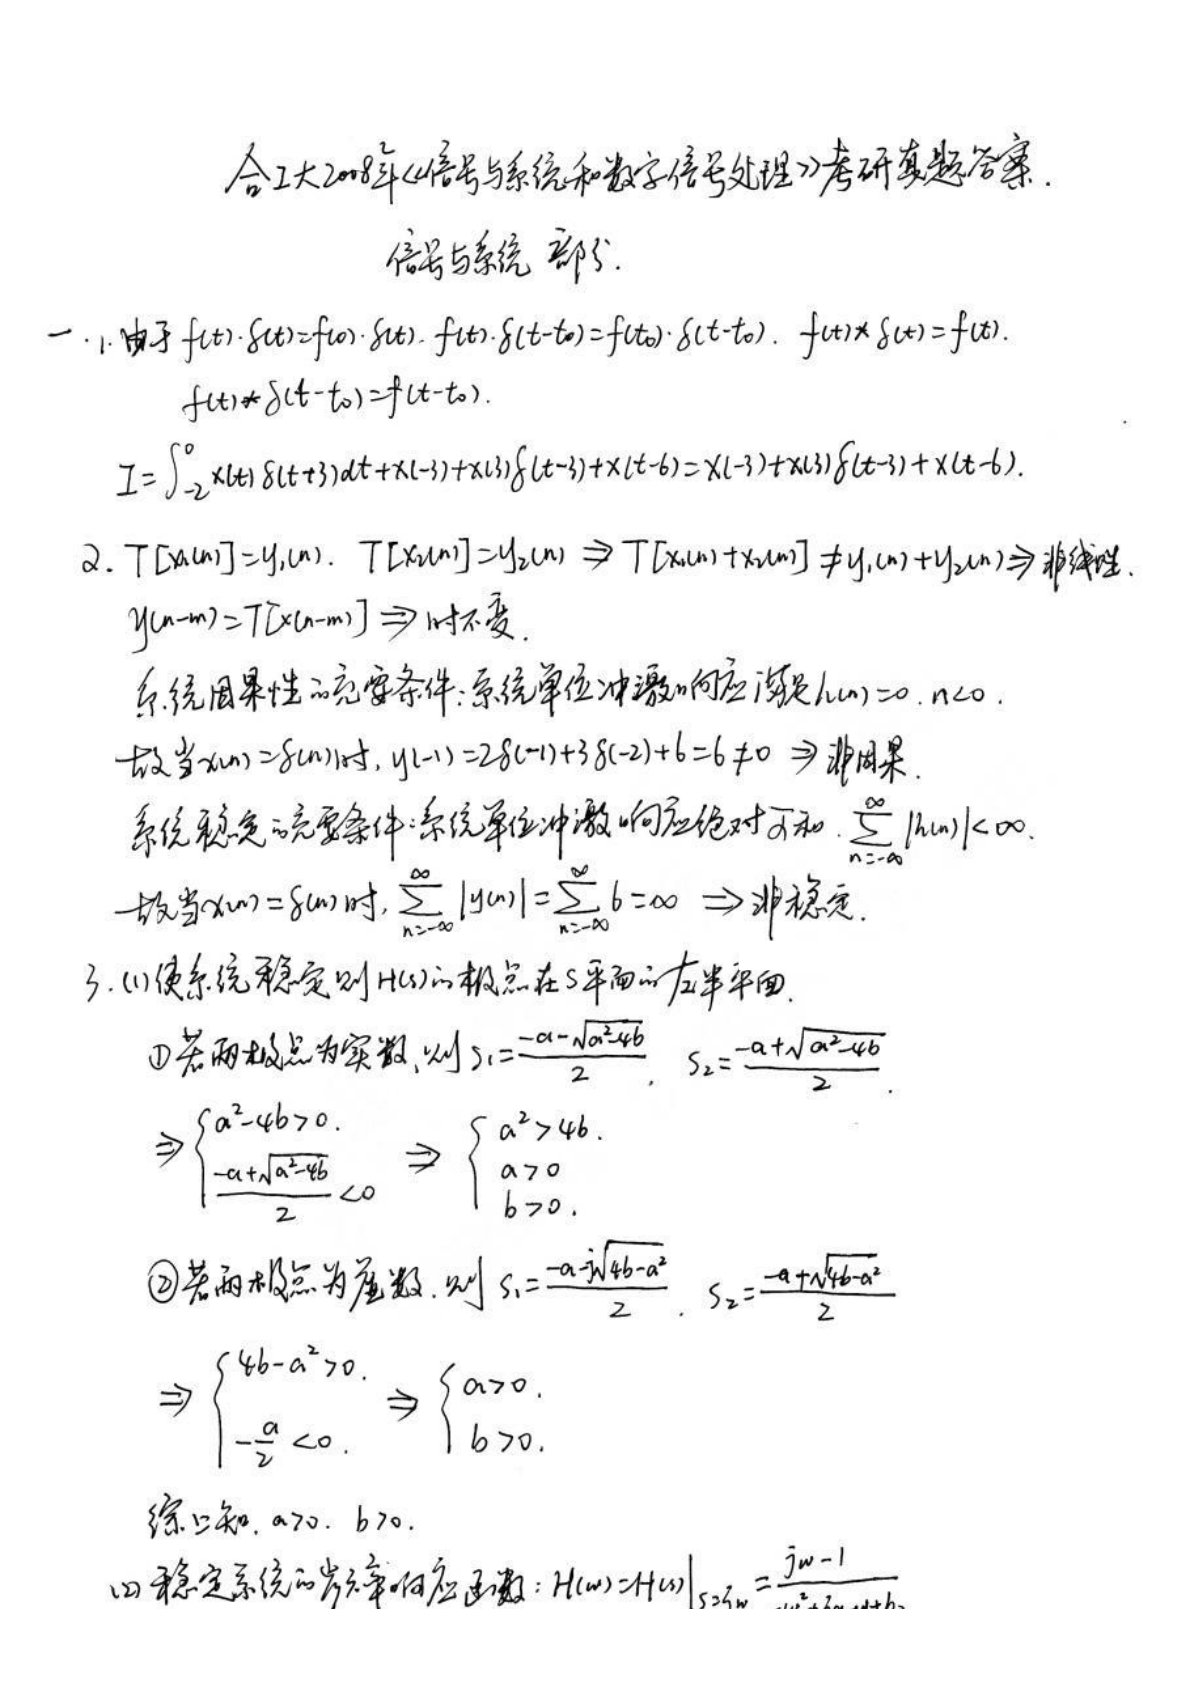 合工大2008年《信号与系统和数字信号处理》考研真题答案.
信号与系统 部分.
一.1.由于 f(t)·δ(t)=f(0)·δ(t). f(t)·δ(t-t₀)=f(t₀)·δ(t-t₀). f(t)*δ(t)=f(t).
f(t)*δ(t-t₀)=f(t-t₀).
I=∫₋₂⁰ x(t)δ(t+3)dt+x(-3)+x(3)δ(t-3)+x(t-6)=x(-3)+x(3)δ(t-3)+x(t-6).
2. T[x₁(n)]=y₁(n). T[x₂(n)]=y₂(n) ⇒ T[x₁(n)+x₂(n)]≠y₁(n)+y₂(n)⇒非线性.
y(n-m)=T[x(n-m)]⇒时不变.
系统因果性的充要条件:系统单位冲激响应满足h(n)=0.n<0.
故当x(n)=δ(n)时, y(-1)=2δ(-1)+3δ(-2)+6=6≠0 ⇒非因果.
系统稳定的充要条件:系统单位冲激响应绝对可和. ∑_{n=-∞}^{∞}|h(n)|<∞.
故当x(n)=δ(n)时, ∑_{n=-∞}^{∞}|y(n)|=∑_{n=-∞}^{∞}6=∞ ⇒非稳定.
3.(1)使系统稳定则H(s)的极点在S平面的左半平面.
①若两极点为实数,则 s₁=(-a-√(a²-4b))/2, s₂=(-a+√(a²-4b))/2.
⇒ { a²-4b>0. (-a+√(a²-4b))/2<0 ⇒ { a²>4b. a>0 b>0.
②若两极点为虚数.则 s₁=(-a-j√(4b-a²))/2. s₂=(-a+√(4b-a²))/2
⇒ { 4b-a²>0. -a/2<0. ⇒ { a>0. b>0.
综上知. a>0. b>0.
(2)稳定系统的频率响应函数: H(w)=H(s)|s=jw=(jw-1)/